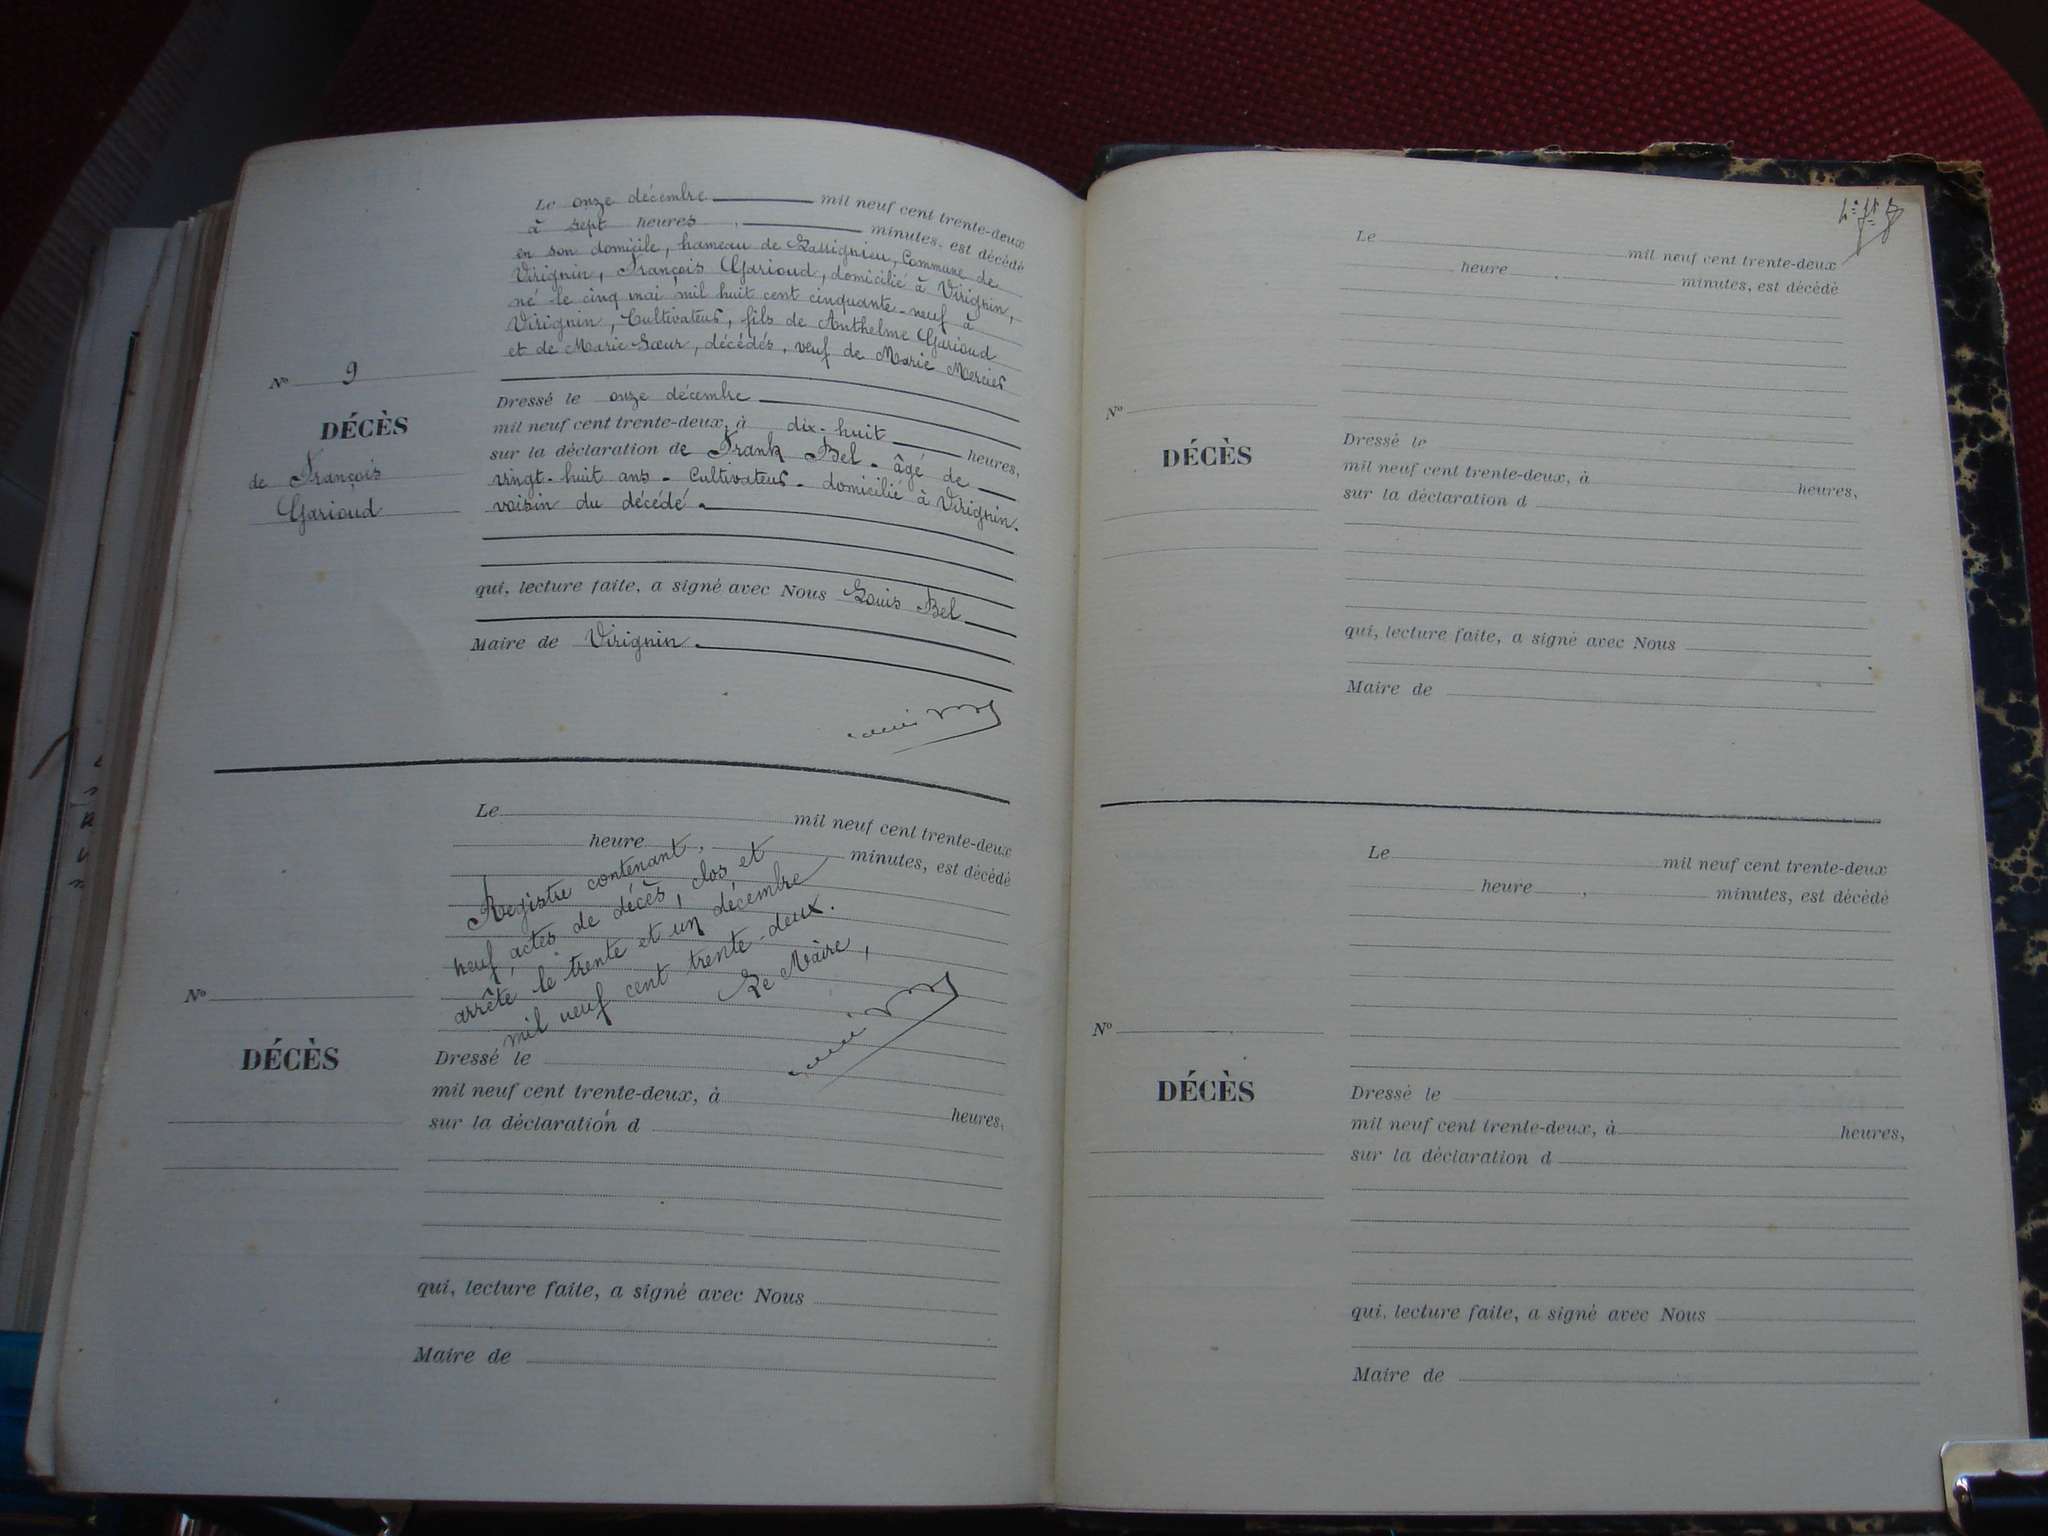 Le onze décembre mil neuf cent trente-deux
à sept heures , minutes, est décédé
en son domicile, hameau de Lassignieu, Commune de
Virignin, François Garioud, domicilié à Virignin,
né le cinq mai mil huit cent cinquante-neuf à
Virignin, Cultivateur, fils de Anthelme Garioud
et de Marie Sœur, décédés, veuf de Marie Mercier
N° 9
DÉCÈS
de François
Garioud
Dressé le onze décembre
mil neuf cent trente-deux, à dix-huit heures,
sur la déclaration de Frank Bel - âgé de
vingt-huit ans - Cultivateur - domicilié à Virignin.
voisin du décédé.
qui, lecture faite, a signé avec Nous Louis Bel
Maire de Virignin.
Le mil neuf cent trente-deux
heure , minutes, est décédé
Registre contenant
neuf actes de décès, clos et
arrête le trente et un décembre
mil neuf cent trente-deux.
Le Maire,
N°
DÉCÈS
Dressé le
mil neuf cent trente-deux, à heures,
sur la déclaration d
qui, lecture faite, a signé avec Nous
Maire de
Le mil neuf cent trente-deux
heure , minutes, est décédé
N°
DÉCÈS
Dressé le
mil neuf cent trente-deux, à heures,
sur la déclaration d
qui, lecture faite, a signé avec Nous
Maire de
Le mil neuf cent trente-deux
heure , minutes, est décédé
N°
DÉCÈS
Dressé le
mil neuf cent trente-deux, à heures,
sur la déclaration d
qui, lecture faite, a signé avec Nous
Maire de